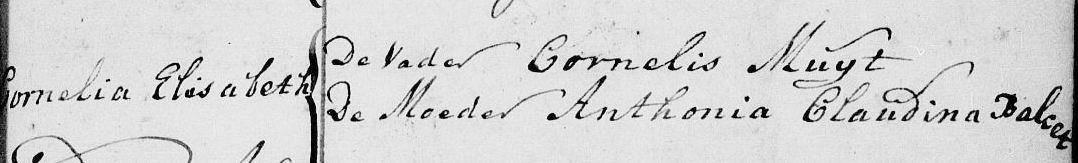 Cornelia Elisabeth
De Vader Cornelis Muyt
De Moeder Anthonia Claudina Balcet